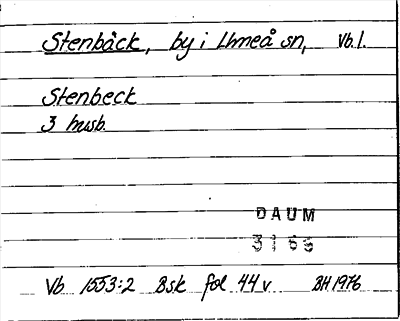 Stenbäck, by i Umeå sn, Vb.l.
Stenbeck
3 husb.
DAUM
3163
Vb 1553:2 Bsk fol 44 v BH 1976